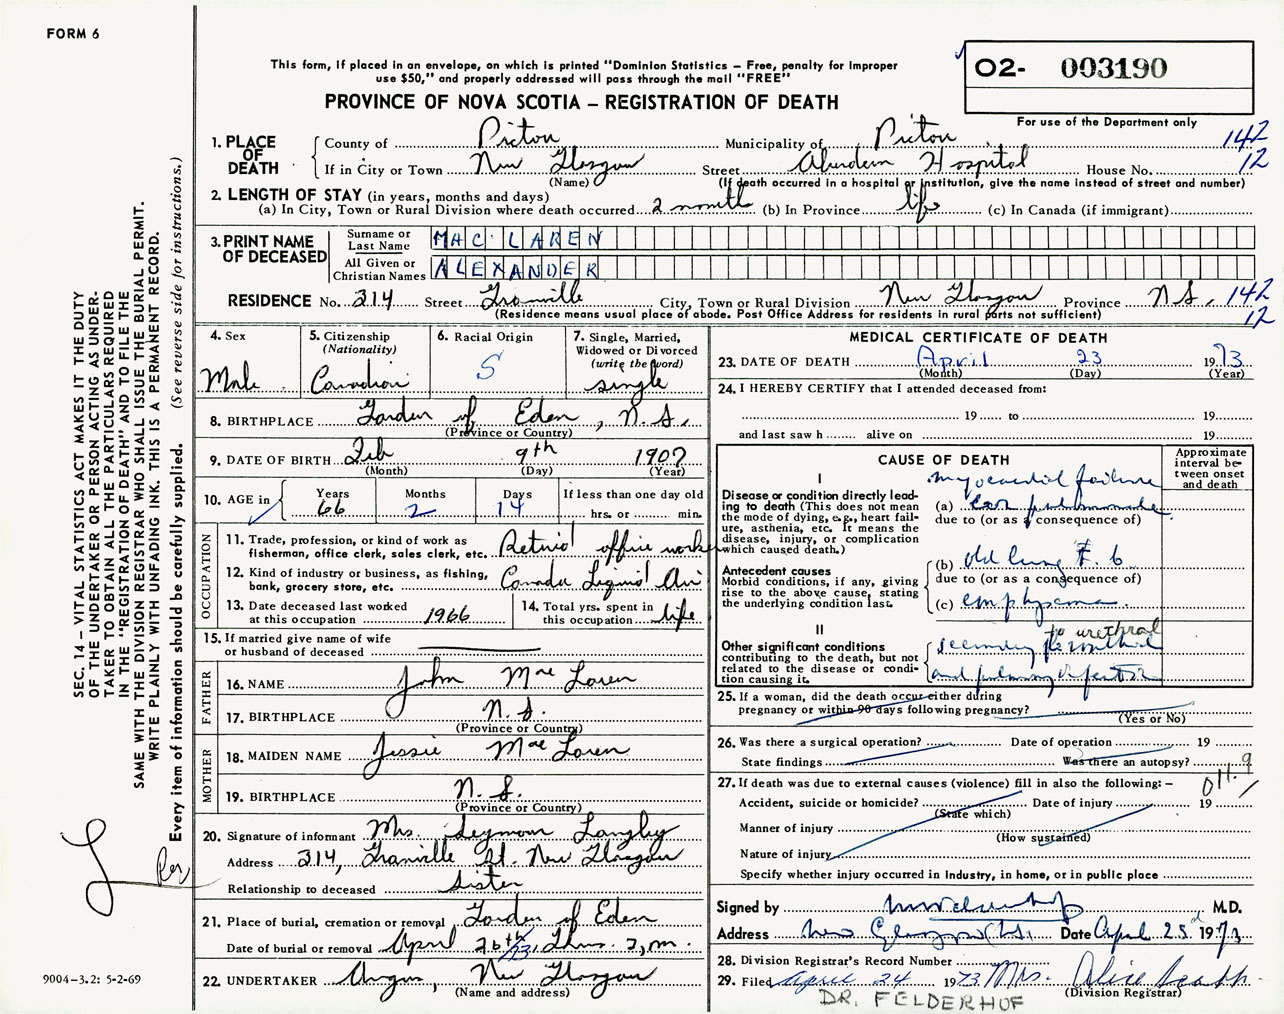 FORM 6
This form, if placed in an envelope, on which is printed "Dominion Statistics – Free, penalty for improper
use $50," and properly addressed will pass through the mail "FREE"
PROVINCE OF NOVA SCOTIA – REGISTRATION OF DEATH
O2- 003190
For use of the Department only
1. PLACE OF DEATH
County of Pictou Municipality of Pictou 142
If in City or Town New Glasgow Street Aberdeen Hospital House No. 12
(Name) (If death occurred in a hospital or institution, give the name instead of street and number)
2. LENGTH OF STAY (in years, months and days)
(a) In City, Town or Rural Division where death occurred 2 month (b) In Province life (c) In Canada (if immigrant)
3. PRINT NAME OF DECEASED
Surname or Last Name MAC LAREN
All Given or Christian Names ALEXANDER
RESIDENCE No. 314 Street Granville City, Town or Rural Division New Glasgow Province N.S. 142
(Residence means usual place of abode. Post Office Address for residents in rural parts not sufficient) 12
4. Sex Male
5. Citizenship (Nationality) Canadian
6. Racial Origin S
7. Single, Married, Widowed or Divorced (write the word) single
8. BIRTHPLACE Garden of Eden, N.S.
(Province or Country)
9. DATE OF BIRTH Feb 9th 1907
(Month) (Day) (Year)
10. AGE in Years 66 Months 2 Days 14 If less than one day old hrs. or min.
OCCUPATION
11. Trade, profession, or kind of work as fisherman, office clerk, sales clerk, etc. Retired office worker
12. Kind of industry or business, as fishing, bank, grocery store, etc. Canada Liquid Air
13. Date deceased last worked at this occupation 1966
14. Total yrs. spent in this occupation life
15. If married give name of wife or husband of deceased
FATHER
16. NAME John Mac Laren
17. BIRTHPLACE N.S.
(Province or Country)
MOTHER
18. MAIDEN NAME Jessie Mac Laren
19. BIRTHPLACE N.S.
(Province or Country)
20. Signature of informant Mrs. Seymour Langley
Address 314, Granville St. New Glasgow
Relationship to deceased Sister
21. Place of burial, cremation or removal Garden of Eden
Date of burial or removal April 26th/73, Thurs. 2 p.m.
22. UNDERTAKER Angus, New Glasgow
(Name and address)
MEDICAL CERTIFICATE OF DEATH
23. DATE OF DEATH April 23 1973
(Month) (Day) (Year)
24. I HEREBY CERTIFY that I attended deceased from:
19 to 19
and last saw h alive on 19
CAUSE OF DEATH
Approximate interval between onset and death
I
Disease or condition directly leading to death (This does not mean the mode of dying, e.g., heart failure, asthenia, etc. It means the disease, injury, or complication which caused death.)
myocardial failure
(a) cor pulmonale
due to (or as a consequence of)
Antecedent causes
Morbid conditions, if any, giving rise to the above cause, stating the underlying condition last.
(b) old lung T.b
due to (or as a consequence of)
(c) emphysema
II
Other significant conditions contributing to the death, but not related to the disease or condition causing it.
to urethral
secondary
and pulmonary infection
25. If a woman, did the death occur either during
pregnancy or within 90 days following pregnancy?
(Yes or No)
26. Was there a surgical operation? Date of operation 19
State findings Was there an autopsy? 9
27. If death was due to external causes (violence) fill in also the following: – 011.9
Accident, suicide or homicide? Date of injury 19
(State which)
Manner of injury
(How sustained)
Nature of injury
Specify whether injury occurred in industry, in home, or in public place
Signed by M.D.
Address New Glasgow N.S. Date April 25 1973
28. Division Registrar's Record Number
29. Filed April 24 1973 Mrs. Alice
(Division Registrar)
DR. FELDERHOF
SEC. 14 – VITAL STATISTICS ACT MAKES IT THE DUTY
OF THE UNDERTAKER OR PERSON ACTING AS UNDER-
TAKER TO OBTAIN ALL THE PARTICULARS REQUIRED
IN THE "REGISTRATION OF DEATH" AND TO FILE THE
SAME WITH THE DIVISION REGISTRAR WHO SHALL ISSUE THE BURIAL PERMIT.
WRITE PLAINLY WITH UNFADING INK. THIS IS A PERMANENT RECORD.
Every item of information should be carefully supplied. (See reverse side for instructions.)
Per
9004–3.2: 5-2-69